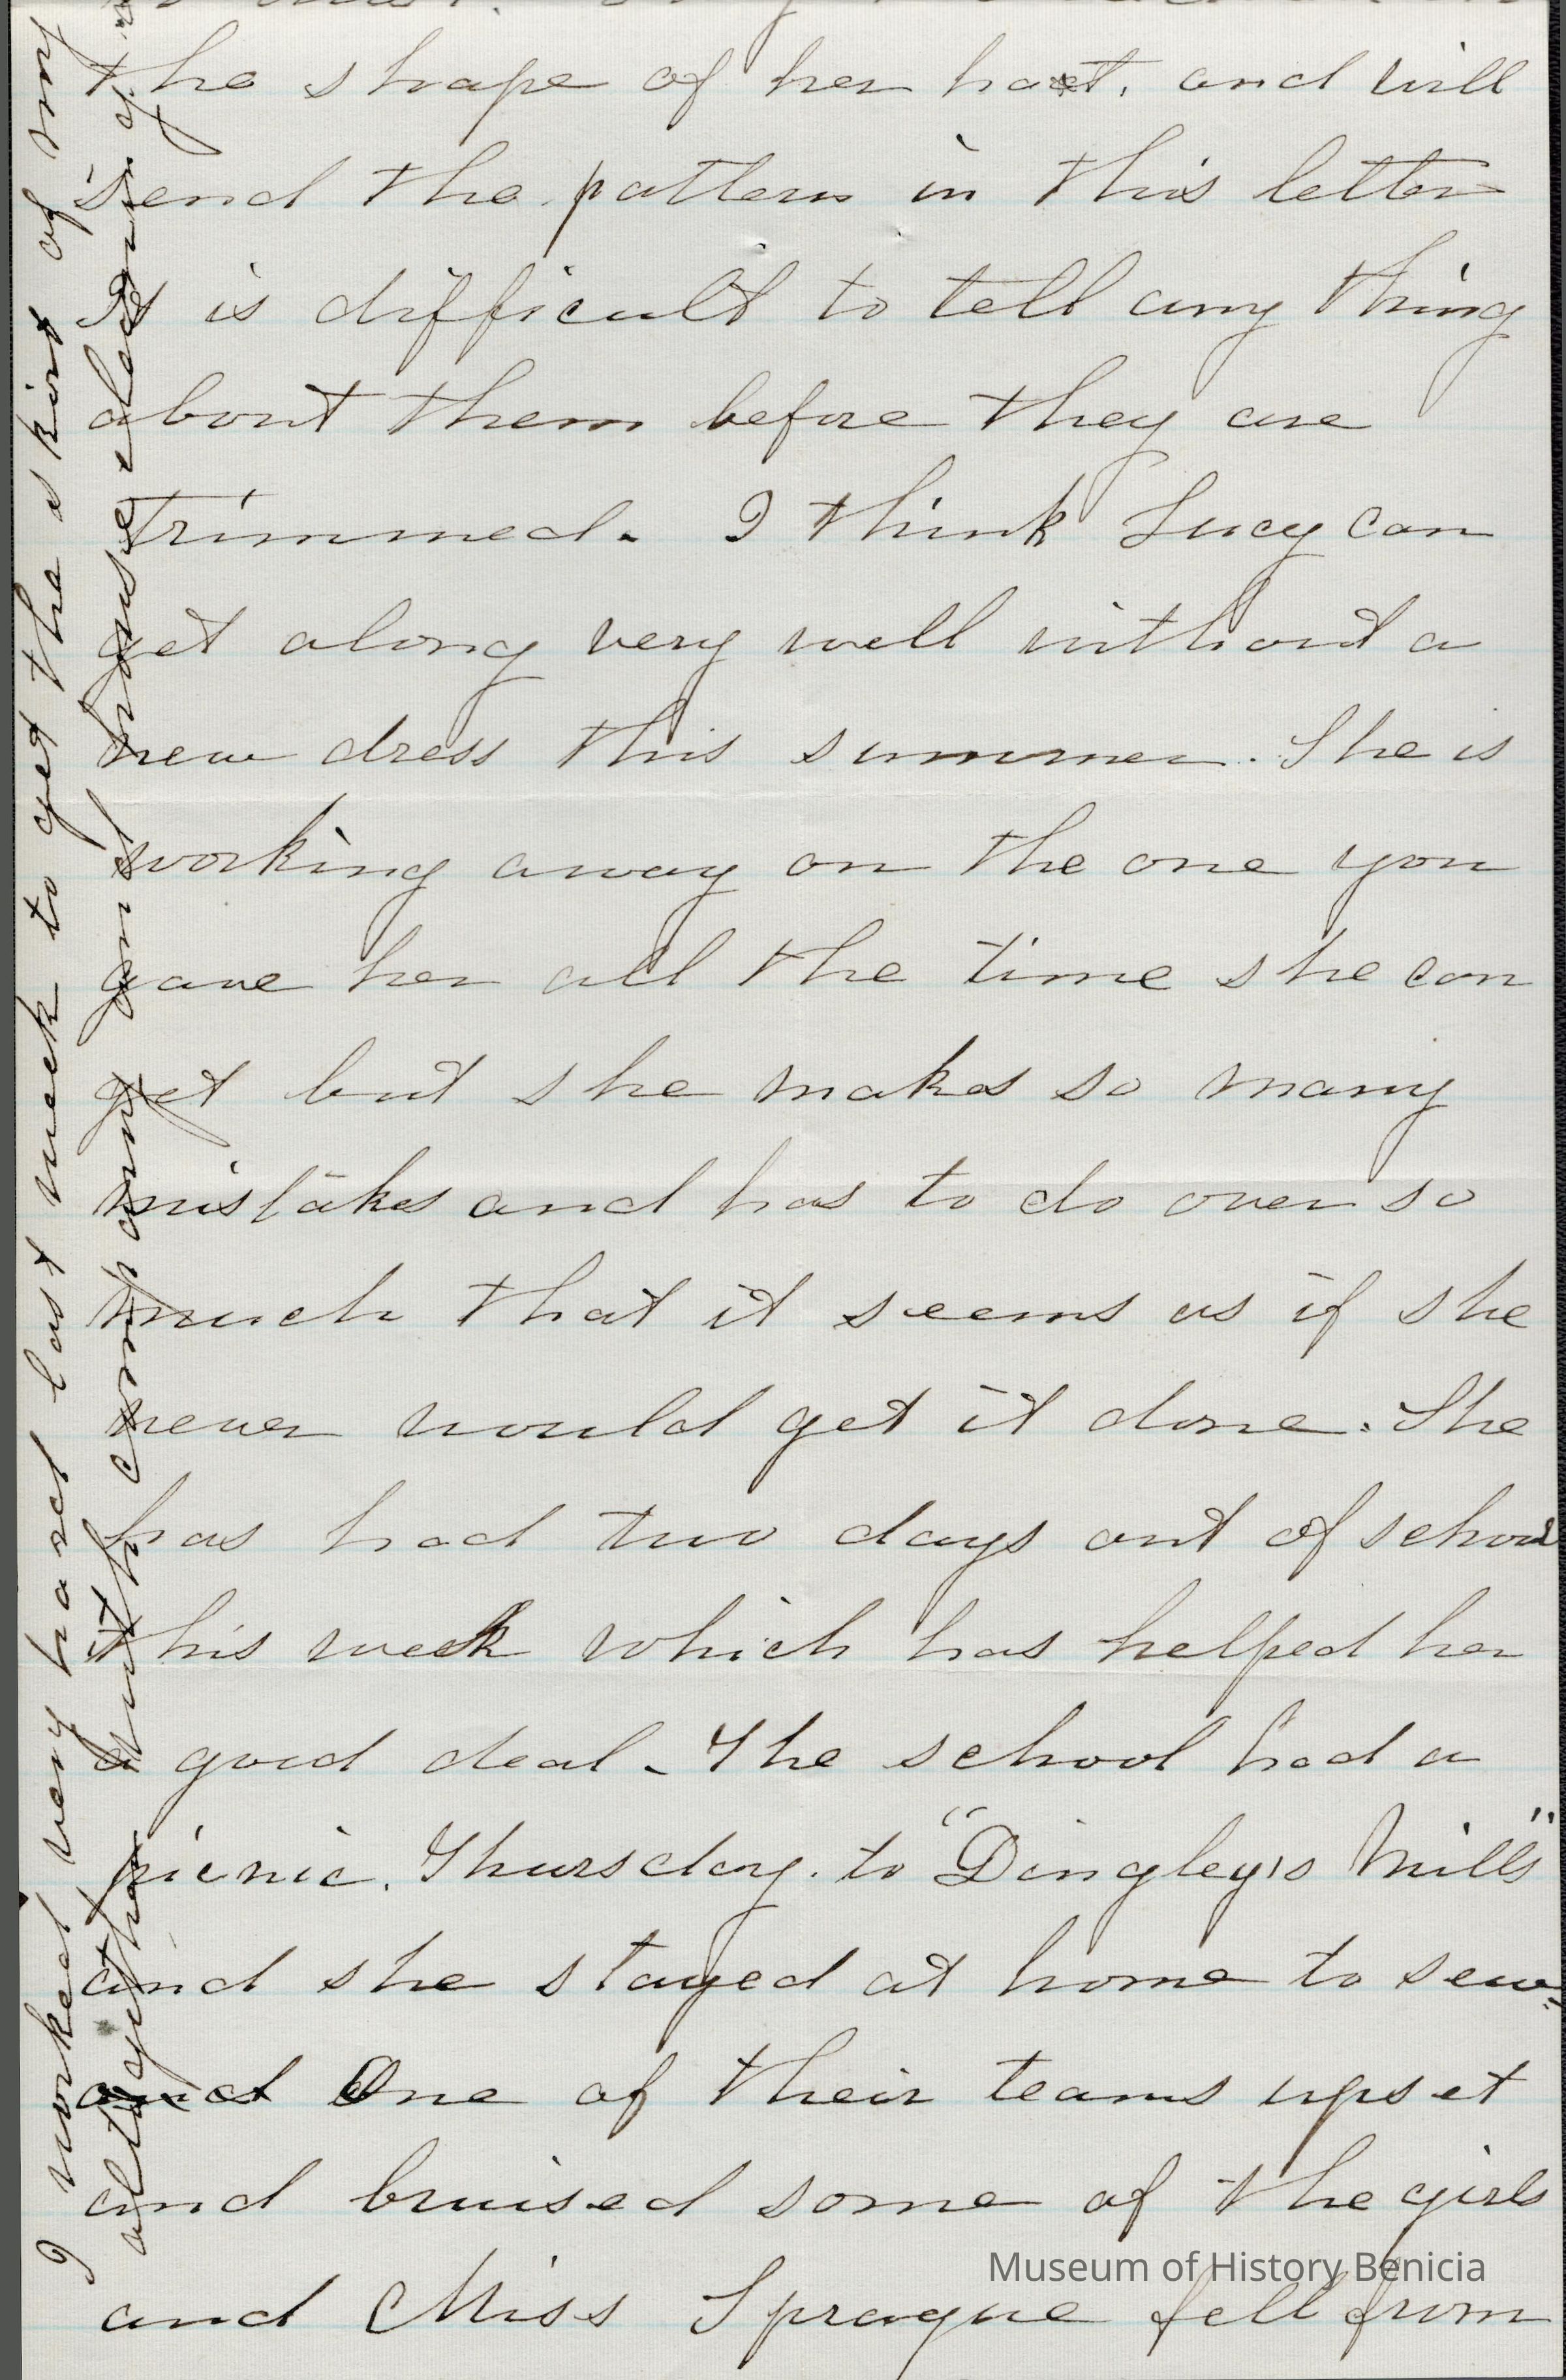 the shape of her hat, and will
send the pattern in this letter
It is difficult to tell any thing
about them before they are
trimmed. I think Lucy can
get along very well without a
new dress this summer. She is
working away on the one you
gave her all the time she can
get but she makes so many
mistakes and has to do over so
much that it seems as if she
never would get it done. She
has had two days out of school
this week which has helped her
a good deal. The school had a
picnic. Thursday. to "Dingley's Mills"
and she stayed at home to sew.
and One of their teams upset
and bruised some of the girls
and Miss Sprague fell from
I worked very hard last week to get the skirt of my
altogether with company and house cleaning
Museum of History Benicia